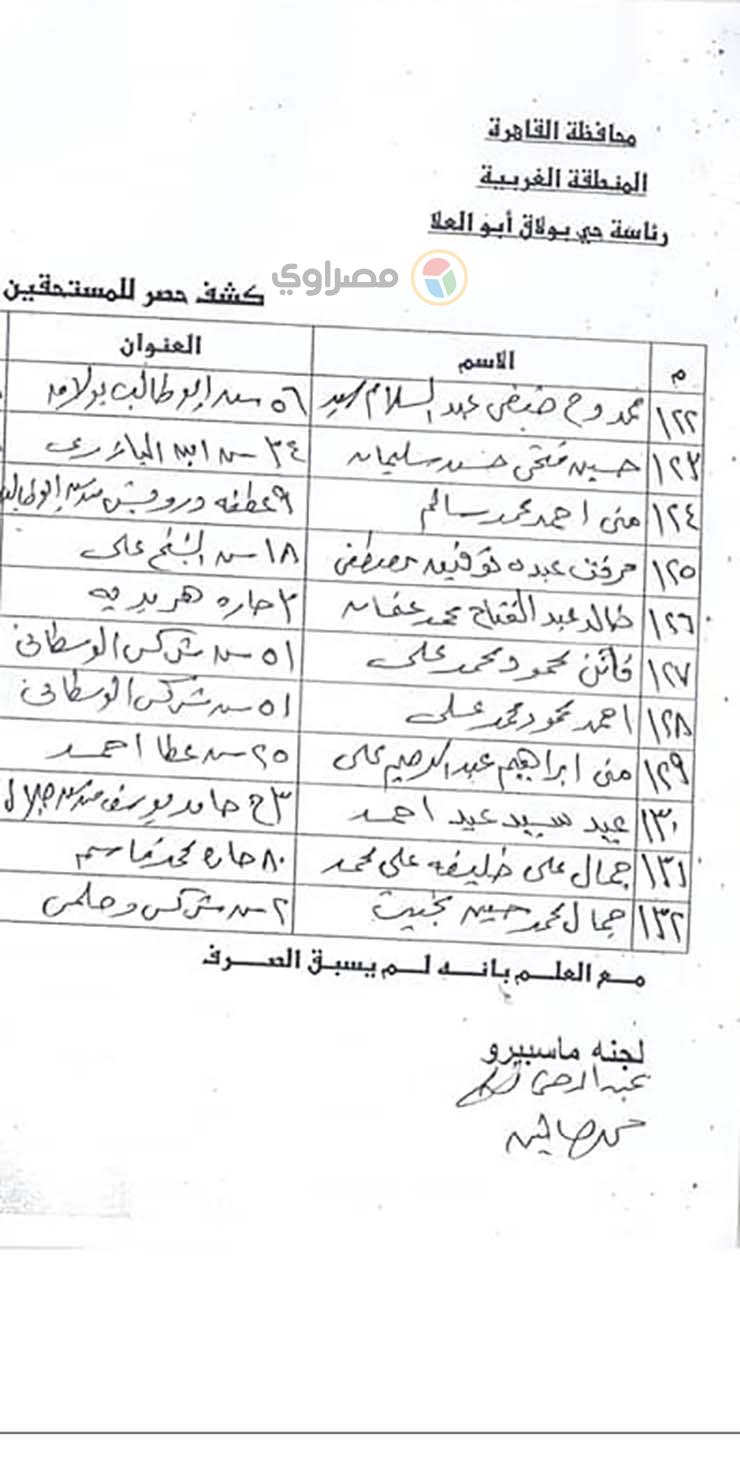 محافظة القاهرة
المنطقة الغربية
رئاسة حي بولاق أبو العلا
مصراوي
كشف حصر للمستحقين
م الاسم العنوان
١٢٢ ممدوح حنفى عبد السلام سيد ٥٦ ش ابو طالب بولاق
١٢٣ حسين فتحى حسن سليمان ٣٤ ش ابن البازرى
١٢٤ منى احمد محمد سالم ٩ عطفه درويش من ش ابو طالب
١٢٥ مرفت عبده توفيق مصطفى ١٨ ش الشيخ على
١٢٦ خالد عبد الفتاح محمد عفان ٣ حاره هريديه
١٢٧ فاتن محمود محمد على ٥١ ش شركس الوسطانى
١٢٨ احمد محمود محمد على ٥١ ش شركس الوسطانى
١٢٩ منى ابراهيم عبد الرحيم على ٢٥ ش عطا احمد
١٣٠ عيد سيد عيد احمد ٣ ح حامد يوسف من ش جلال
١٣١ جمال على خليفه على محمد ٨٠ حاره محمد قاسم
١٣٢ جمال محمد حسين بخيت ٢ ش شركس وحلمى
مع العلم بانه لم يسبق الصرف
لجنه ماسبيرو
عبد الرحمن